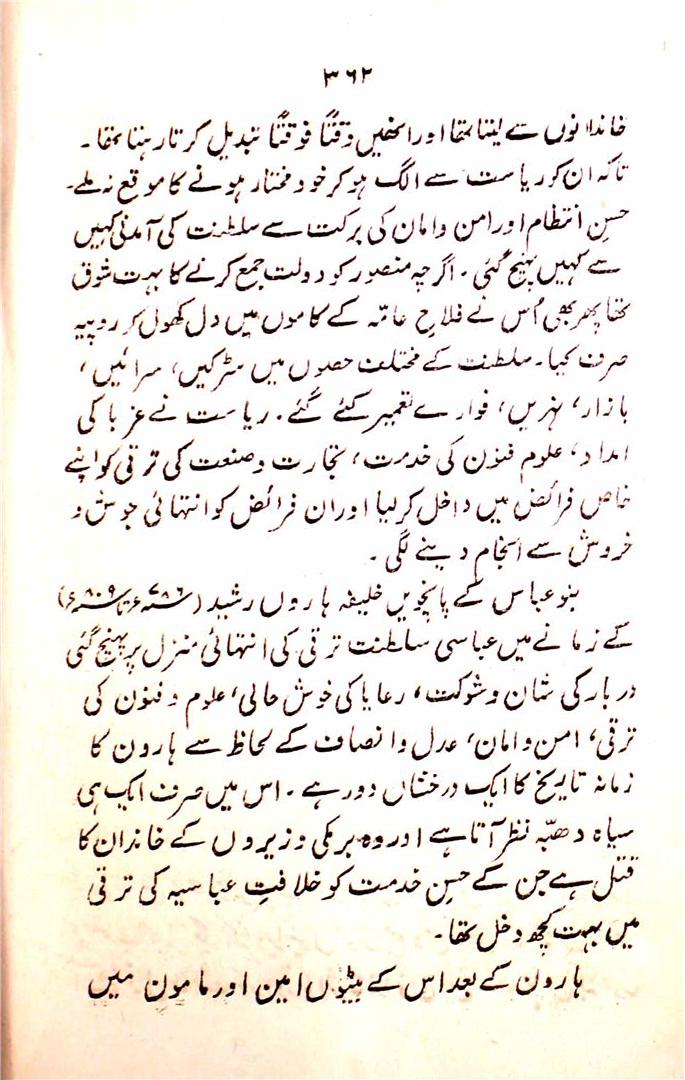 ۳۶۲
خاندانوں سے لیتا تھا اور انھیں وقتاً فوقتاً تبدیل کرتا رہتا تھا۔
تاکہ ان کو ریاست سے الگ ہو کر خود مختار ہونے کا موقع نہ ملے۔
حسنِ انتظام اور امن و امان کی برکت سے سلطنت کی آمدنی کہیں
سے کہیں پہنچ گئی۔ اگرچہ منصور کو دولت جمع کرنے کا بہت شوق
تھا پھر بھی اُس نے فلاحِ عامّہ کے کاموں میں دل کھول کر روپیہ
صرف کیا۔ سلطنت کے مختلف حصوں میں سڑکیں، سرائیں،
بازار، نہریں، فوارے تعمیر کئے گئے۔ ریاست نے غربا کی
امداد، علوم فنون کی خدمت، تجارت و صنعت کی ترقی کو اپنے
خاص فرائض میں داخل کر لیا اور ان فرائض کو انتہائی جوش و
خروش سے انجام دینے لگی۔
بنو عباس کے پانچویں خلیفہ ہاروں رشید (۷۸۶ء تا ۸۰۹ء)
کے زمانے میں عباسی سلطنت ترقی کی انتہائی منزل پر پہنچ گئی
دربار کی شان و شوکت، رعایا کی خوش حالی، علوم و فنون کی
ترقی، امن و امان، عدل و انصاف کے لحاظ سے ہارون کا
زمانہ تاریخ کا ایک درخشاں دور ہے۔ اس میں صرف ایک ہی
سیاہ دھبّہ نظر آتا ہے اور وہ برمکی وزیروں کے خاندان کا
قتل ہے جن کے حسنِ خدمت کو خلافتِ عباسیہ کی ترقی
میں بہت کچھ دخل تھا۔
ہارون کے بعد اس کے بیٹوں امین اور مامون میں